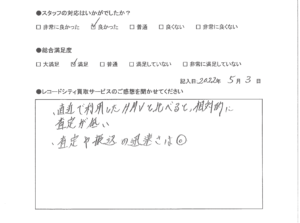 ●スタッフの対応はいかがでしたか？
□ 非常に良かった ☑ 良かった □ 普通 □ 良くない □ 非常に良くない
●総合満足度
□ 大満足 ☑ 満足 □ 普通 □ 満足していない □ 非常に満足していない
記入日 2022年 5月 3日
●レコードシティ買取サービスのご感想を聞かせてください
・直近で利用したHMVと比べると、相対的に
査定が低い
・査定や振込の迅速さは◎